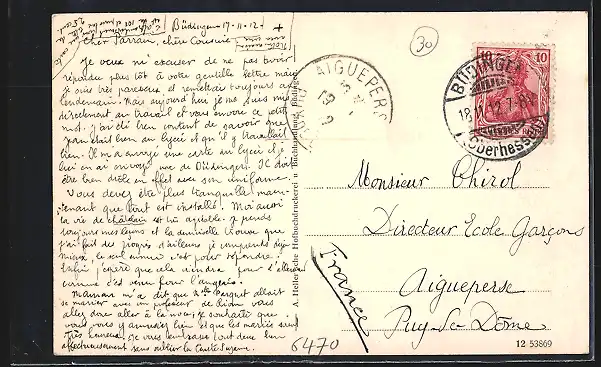 Büdingen 17-11-12
cher Parrain, chère Cousine
Je veux m'excuser de ne pas avoir
répondu plus tôt à votre gentille lettre mais
je suis très paresseux et remettrais toujours au
lendemain. Mais aujourd'hui je me suis mis
directement au travail et vous envoie ce petit
mot. J'ai été bien content de savoir que
Jean était bien au lycée et qu'il y travaillait
bien. Il m'a envoyé une carte au lycée et je
lui en ai envoyé une de Büdingen. Il doit
être bien drôle en effet avec son uniforme.
Vous devez être plus tranquille main-
tenant que tout est installé. Moi aussi
la vie de châtelain est très agréable. Je prends
toujours mes leçons et la demoiselle trouve que
j'ai fait des progrès d'ailleurs je comprends déjà
mieux, le seul ennui c'est pour répondre.
Enfin j'espère que cela viendra pour l'allemand
comme c'est venu pour l'anglais.
Maman m'a dit que Melle Parquet allait
se marier avec un professeur de Riom vous
allez donc aller à la noce; je souhaite que
vous vous y amusiez bien et que les mariés soient
très heureux. Je vous embrasse tout deux bien
affectueusement sans oublier la Cousine
30
AIGUEPERSE
BÜDINGEN
18 12.7-8
(Oberhessen)
10
A. Heller'sche Hofbuchdruckerei u. Buchhandlung, Büdingen
Monsieur Chirol
Directeur Ecole Garçons
Aigueperse
Puy-de-Dôme
France
6470
12 53869